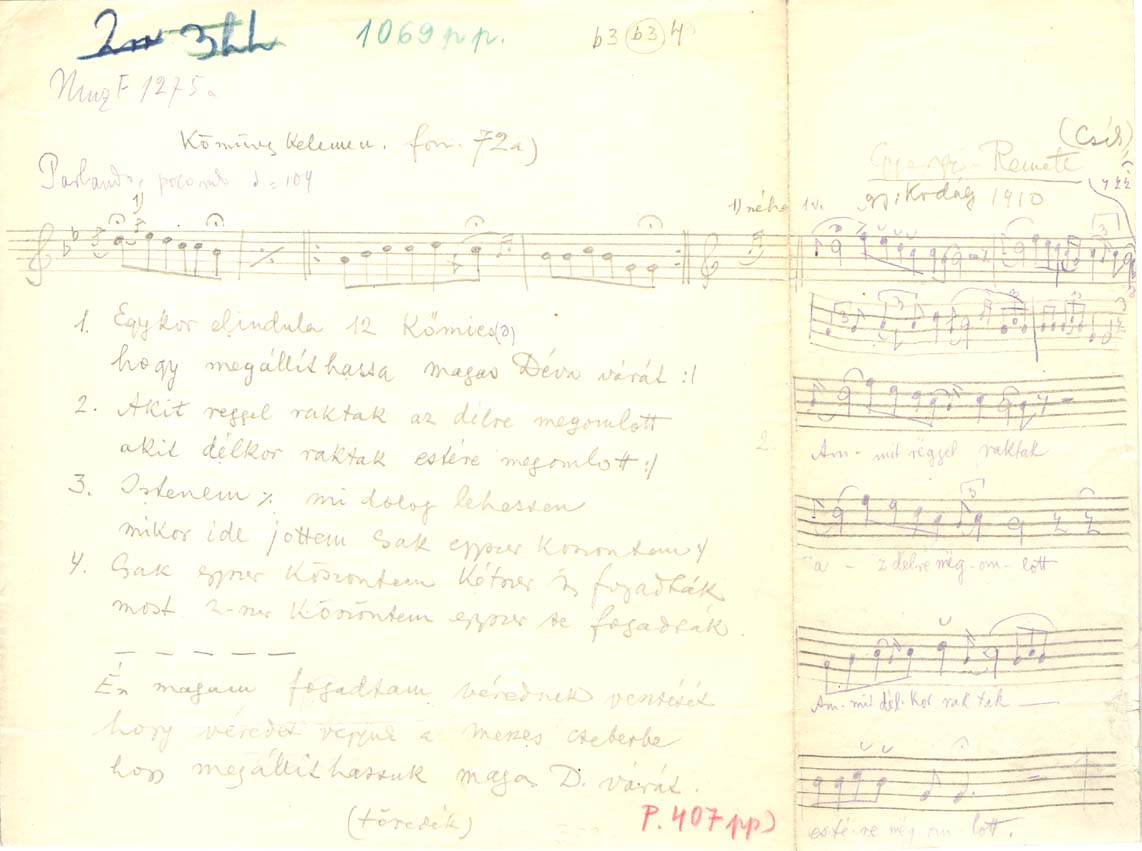 1069 pp.
b3 b3 4
MuzF 1275a
(Csík)
Kőmüves Kelemen. fon. 72a)
Gyergyó-Remete
Parlando, poco rub ♩ = 104
gy: Kodály 1910
1) néha 1v.
1)
3
1. Egykor elindula 12 Kőmies(ə)
hogy megállíthassa magas Déva várát :/
3
2. Akit reggel raktak az délre megomlott
akit délkor raktak estére megomlott :/
2. Am- mit réggel raktak
3. Istenem ٪ mi dolog lehessen
mikor ide jottem csak egyszer Koszontem :/
3
4. Csak egyszer Köszöntem Kétszer is fogadták
most 2-szer Köszöntem egyszer se fogadták.
a - z délre mëg-om- lott
Én magam fogadtam vérednek ventését
Am- mit dél-kor rak ták
hogy véredet vegyük a meszes cseberbe
hogy megállíthassuk magas D. várát.
(töredék)
P. 407 pp)
esté-re mëg om lott.